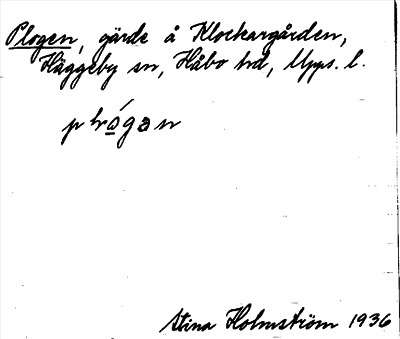 Plogen, gärde å Klockargården,
Häggeby sn, Håbo hd, Upps. l.
Stina Holmström 1936